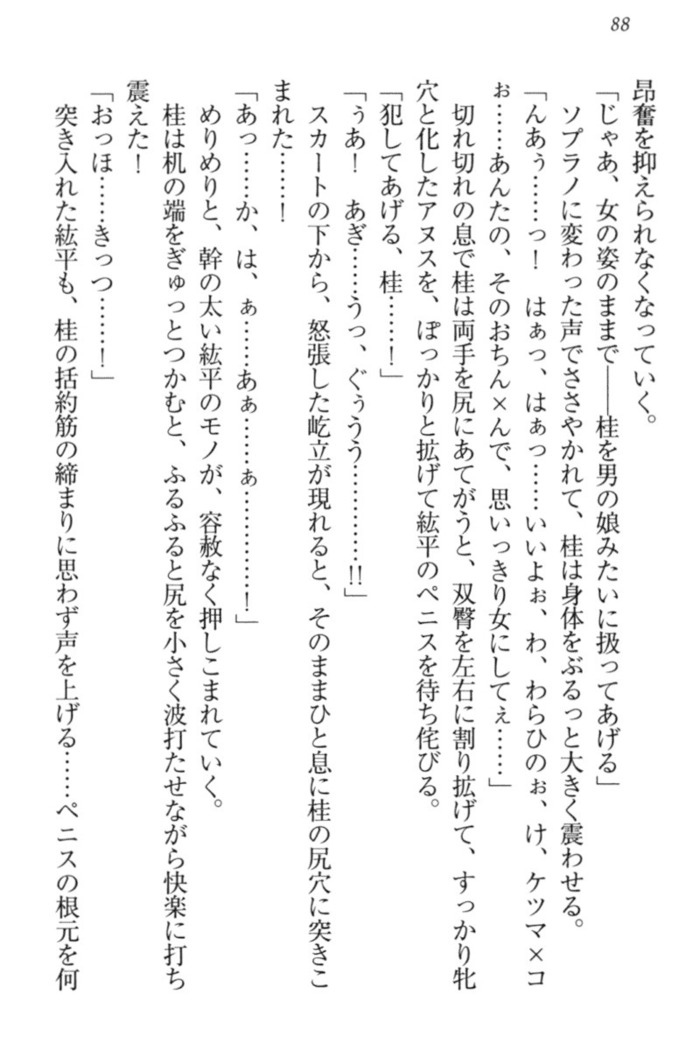 88
昂奮を抑えられなくなっていく。
「じゃあ、女の姿のままで――桂を男の娘みたいに扱ってあげる」
ソプラノに変わった声でささやかれて、桂は身体をぶるっと大きく震わせる。
「んあぅ……っ！　はぁっ、はぁっ……いいよぉ、わ、わらひのぉ、け、ケツマ×コ
ぉ……あんたの、そのおちん×んで、思いっきり女にしてぇ……」
切れ切れの息で桂は両手を尻にあてがうと、双臀を左右に割り拡げて、すっかり牝
穴と化したアヌスを、ぽっかりと拡げて紘平のペニスを待ち侘びる。
「犯してあげる、桂……！」
「ぅあ！　あぎ……うっ、ぐぅうう…………!!」
スカートの下から、怒張した屹立が現れると、そのままひと息に桂の尻穴に突きこ
まれた……！
「あっ……か、は、ぁ……あぁ……ぁ…………！」
めりめりと、幹の太い紘平のモノが、容赦なく押しこまれていく。
桂は机の端をぎゅっとつかむと、ふるふると尻を小さく波打たせながら快楽に打ち
震えた！
「おっほ……きっつ……！」
突き入れた紘平も、桂の括約筋の締まりに思わず声を上げる……ペニスの根元を何